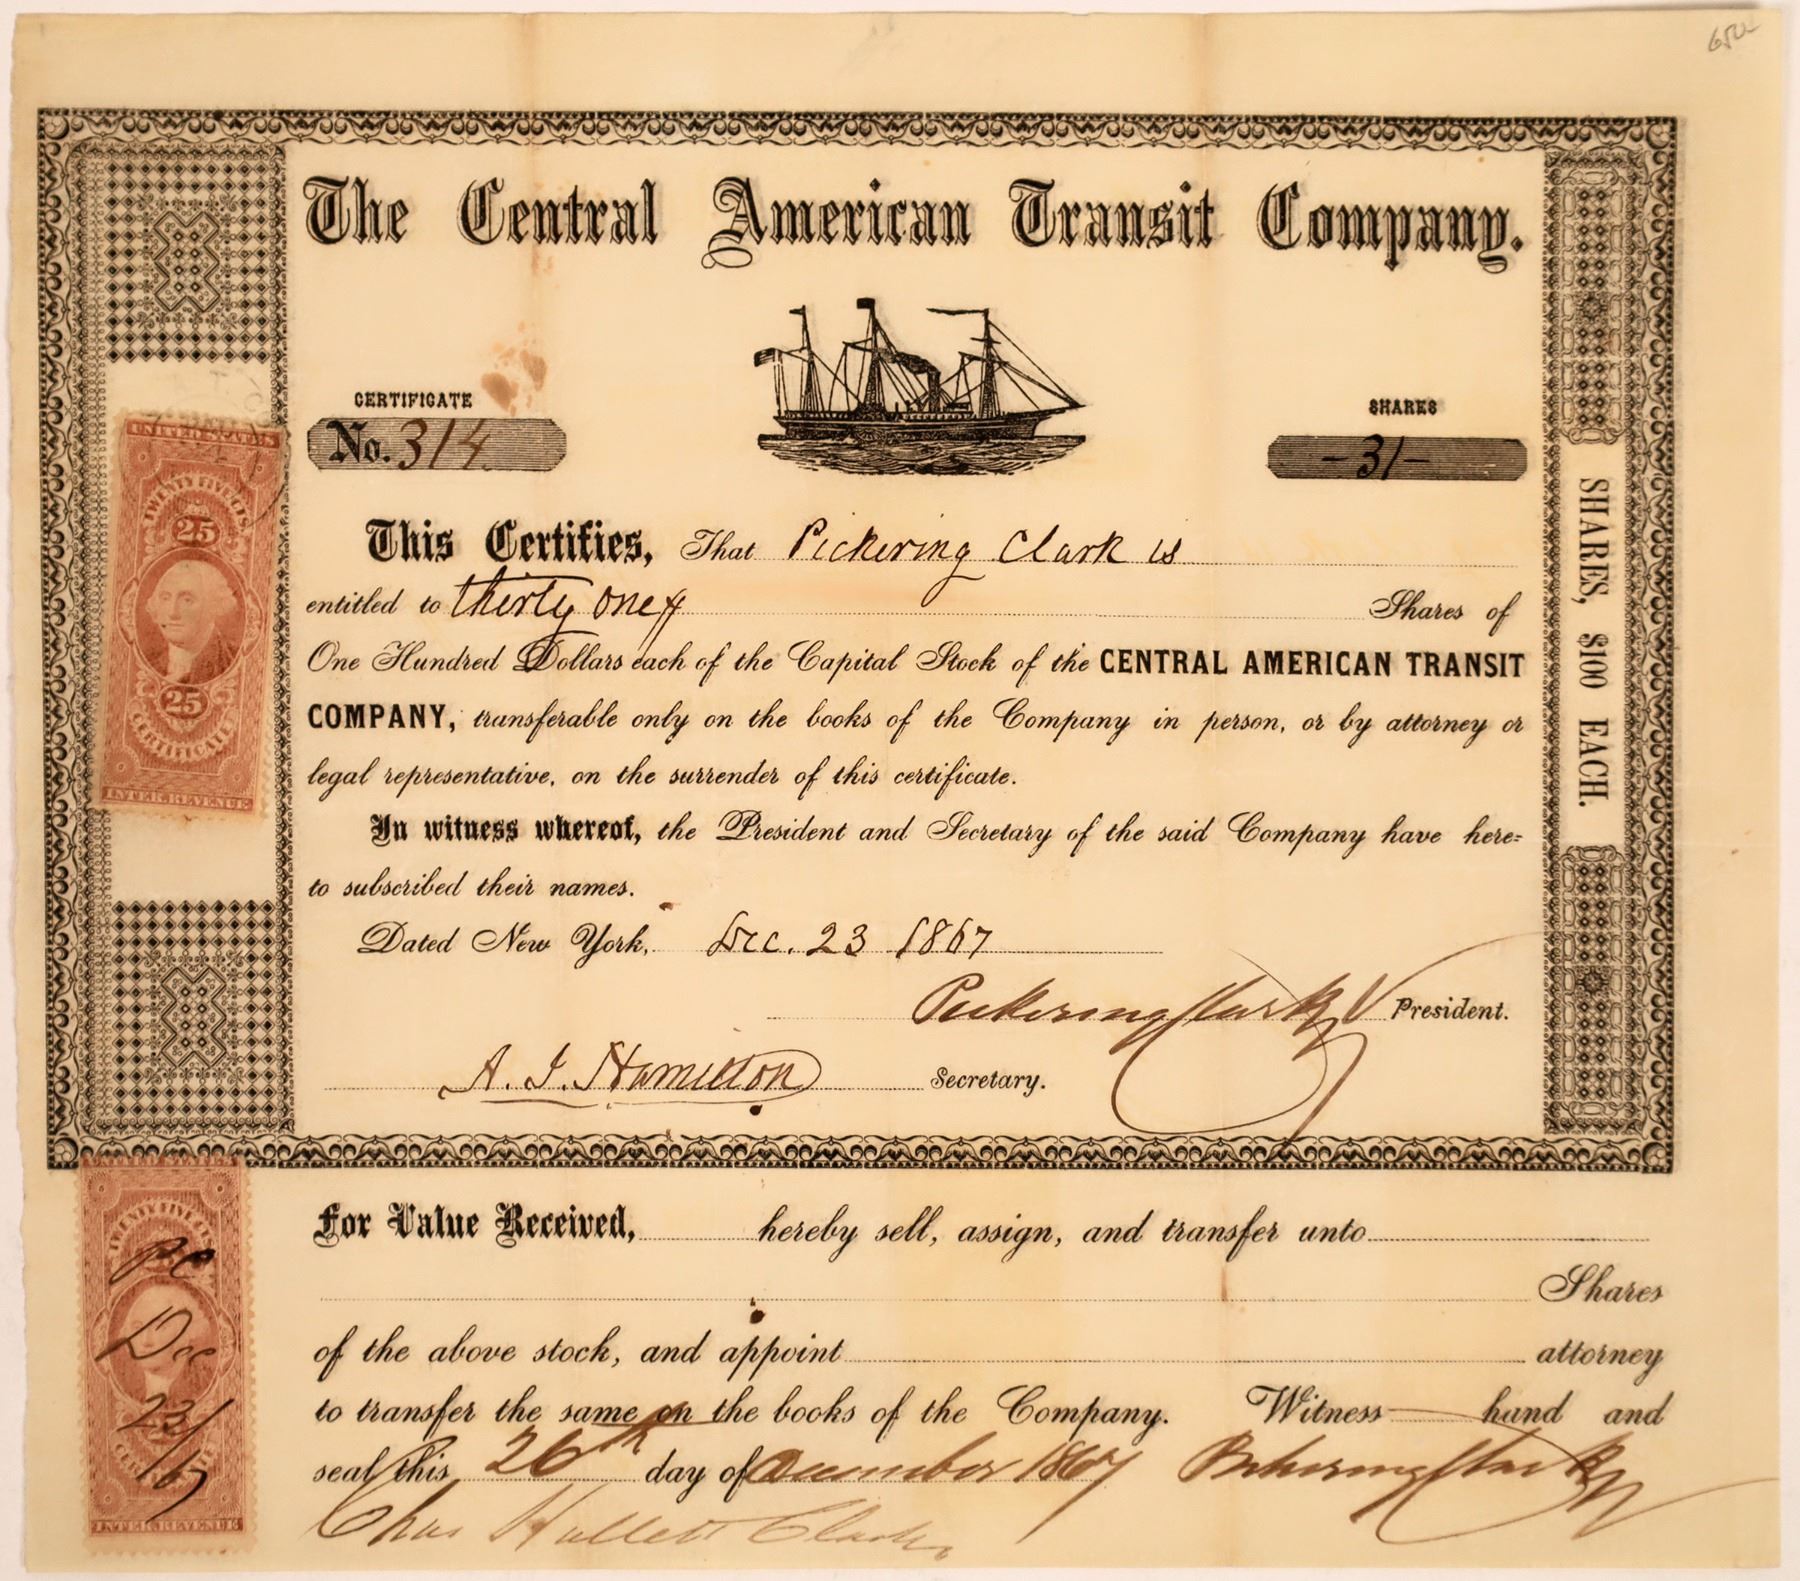 650
The Central American Transit Company.
CERTIFICATE
No. 314
SHARES
-31-
UNITED STATES
TWENTY FIVE CTS
25
25
CERTIFICATE
INTER. REVENUE
SHARES, $100 EACH.
This Certifies, That Pickering Clark is
entitled to thirty one Shares of
One Hundred Dollars each of the Capital Stock of the CENTRAL AMERICAN TRANSIT
COMPANY, transferable only on the books of the Company in person, or by attorney or
legal representative, on the surrender of this certificate.
In witness whereof, the President and Secretary of the said Company have here=
to subscribed their names.
Dated New York, Dec. 23 1867
Pickering Clark President.
A. J. Hamilton Secretary.
TWENTY FIVE CTS
PC
Dec
23/
/67
INTER. REVENUE
For Value Received, hereby sell, assign, and transfer unto
Shares
of the above stock, and appoint attorney
to transfer the same on the books of the Company. Witness hand and
seal this 26th day of December 1867 Pickering Clark
Chas Hallett Clark